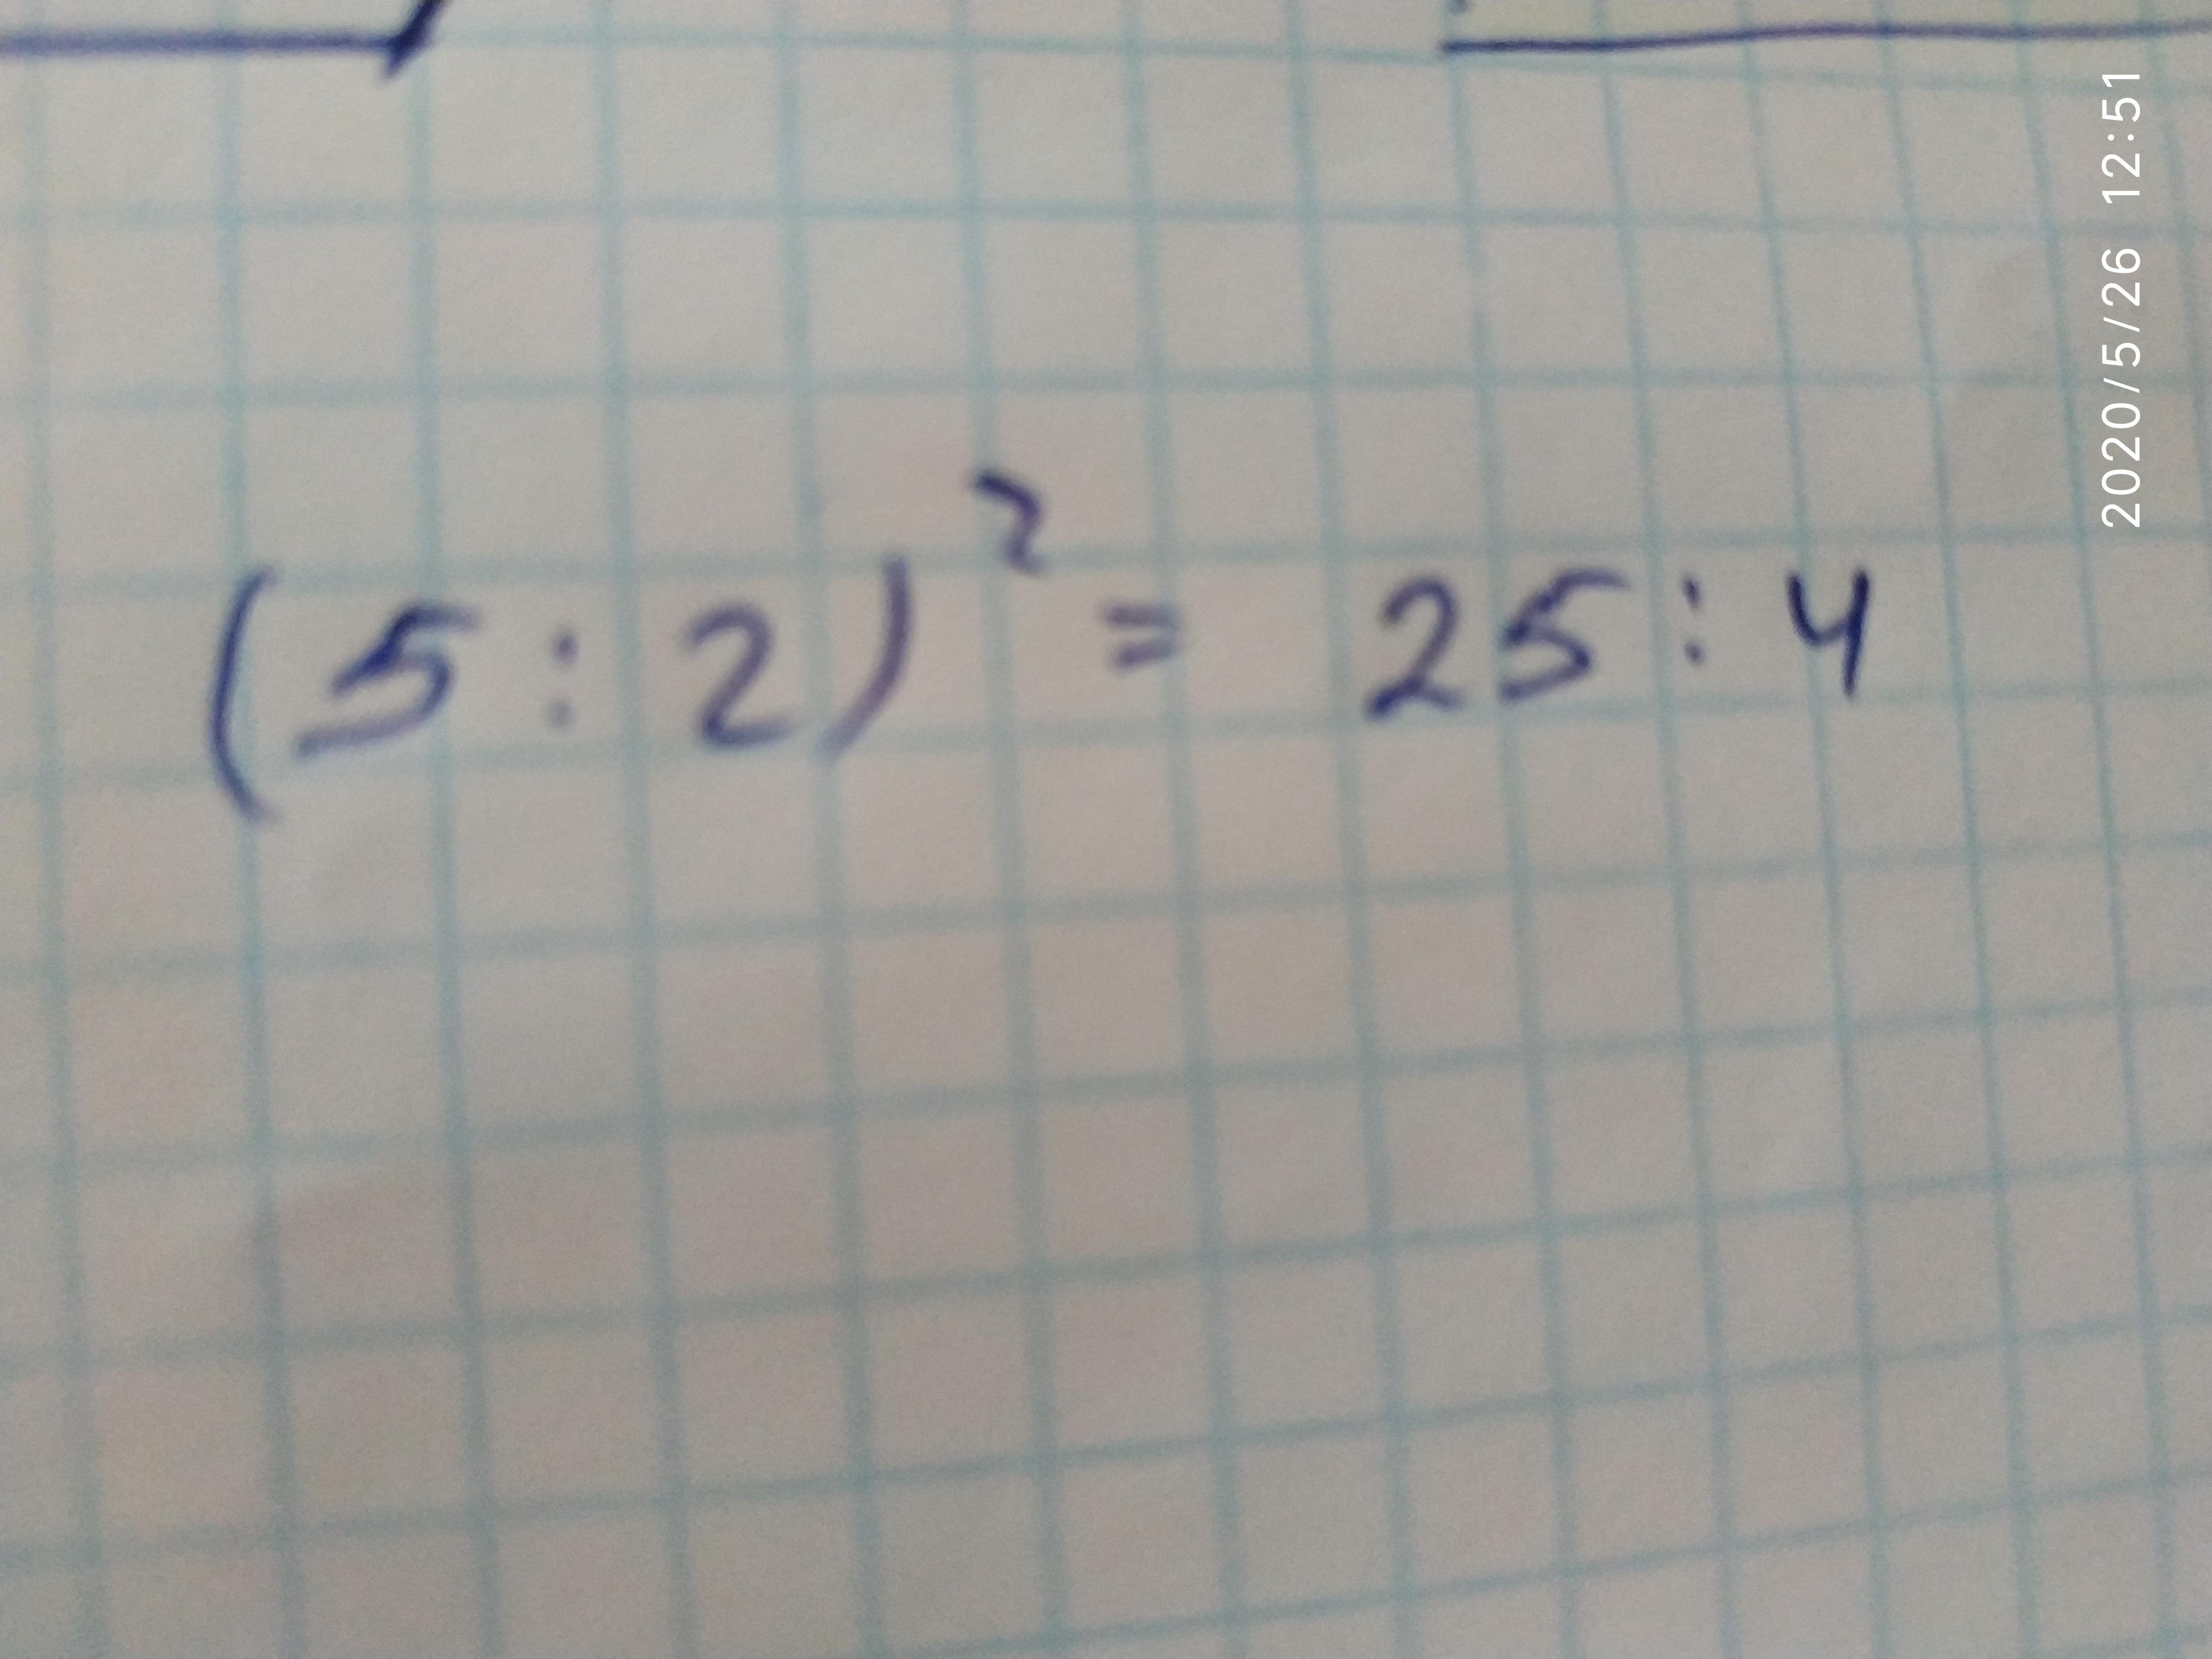 (5 : 2)² = 25 : 4
2020/5/26 12:51